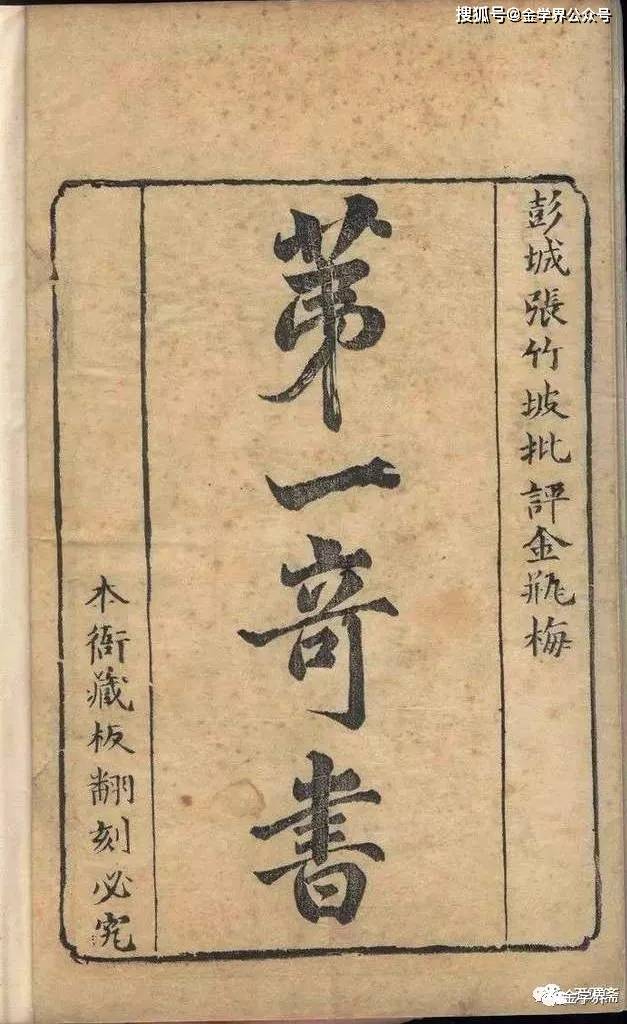 搜狐号@金学界公众号
彭城張竹坡批評金瓶梅
第一奇書
本衙藏板翻刻必究